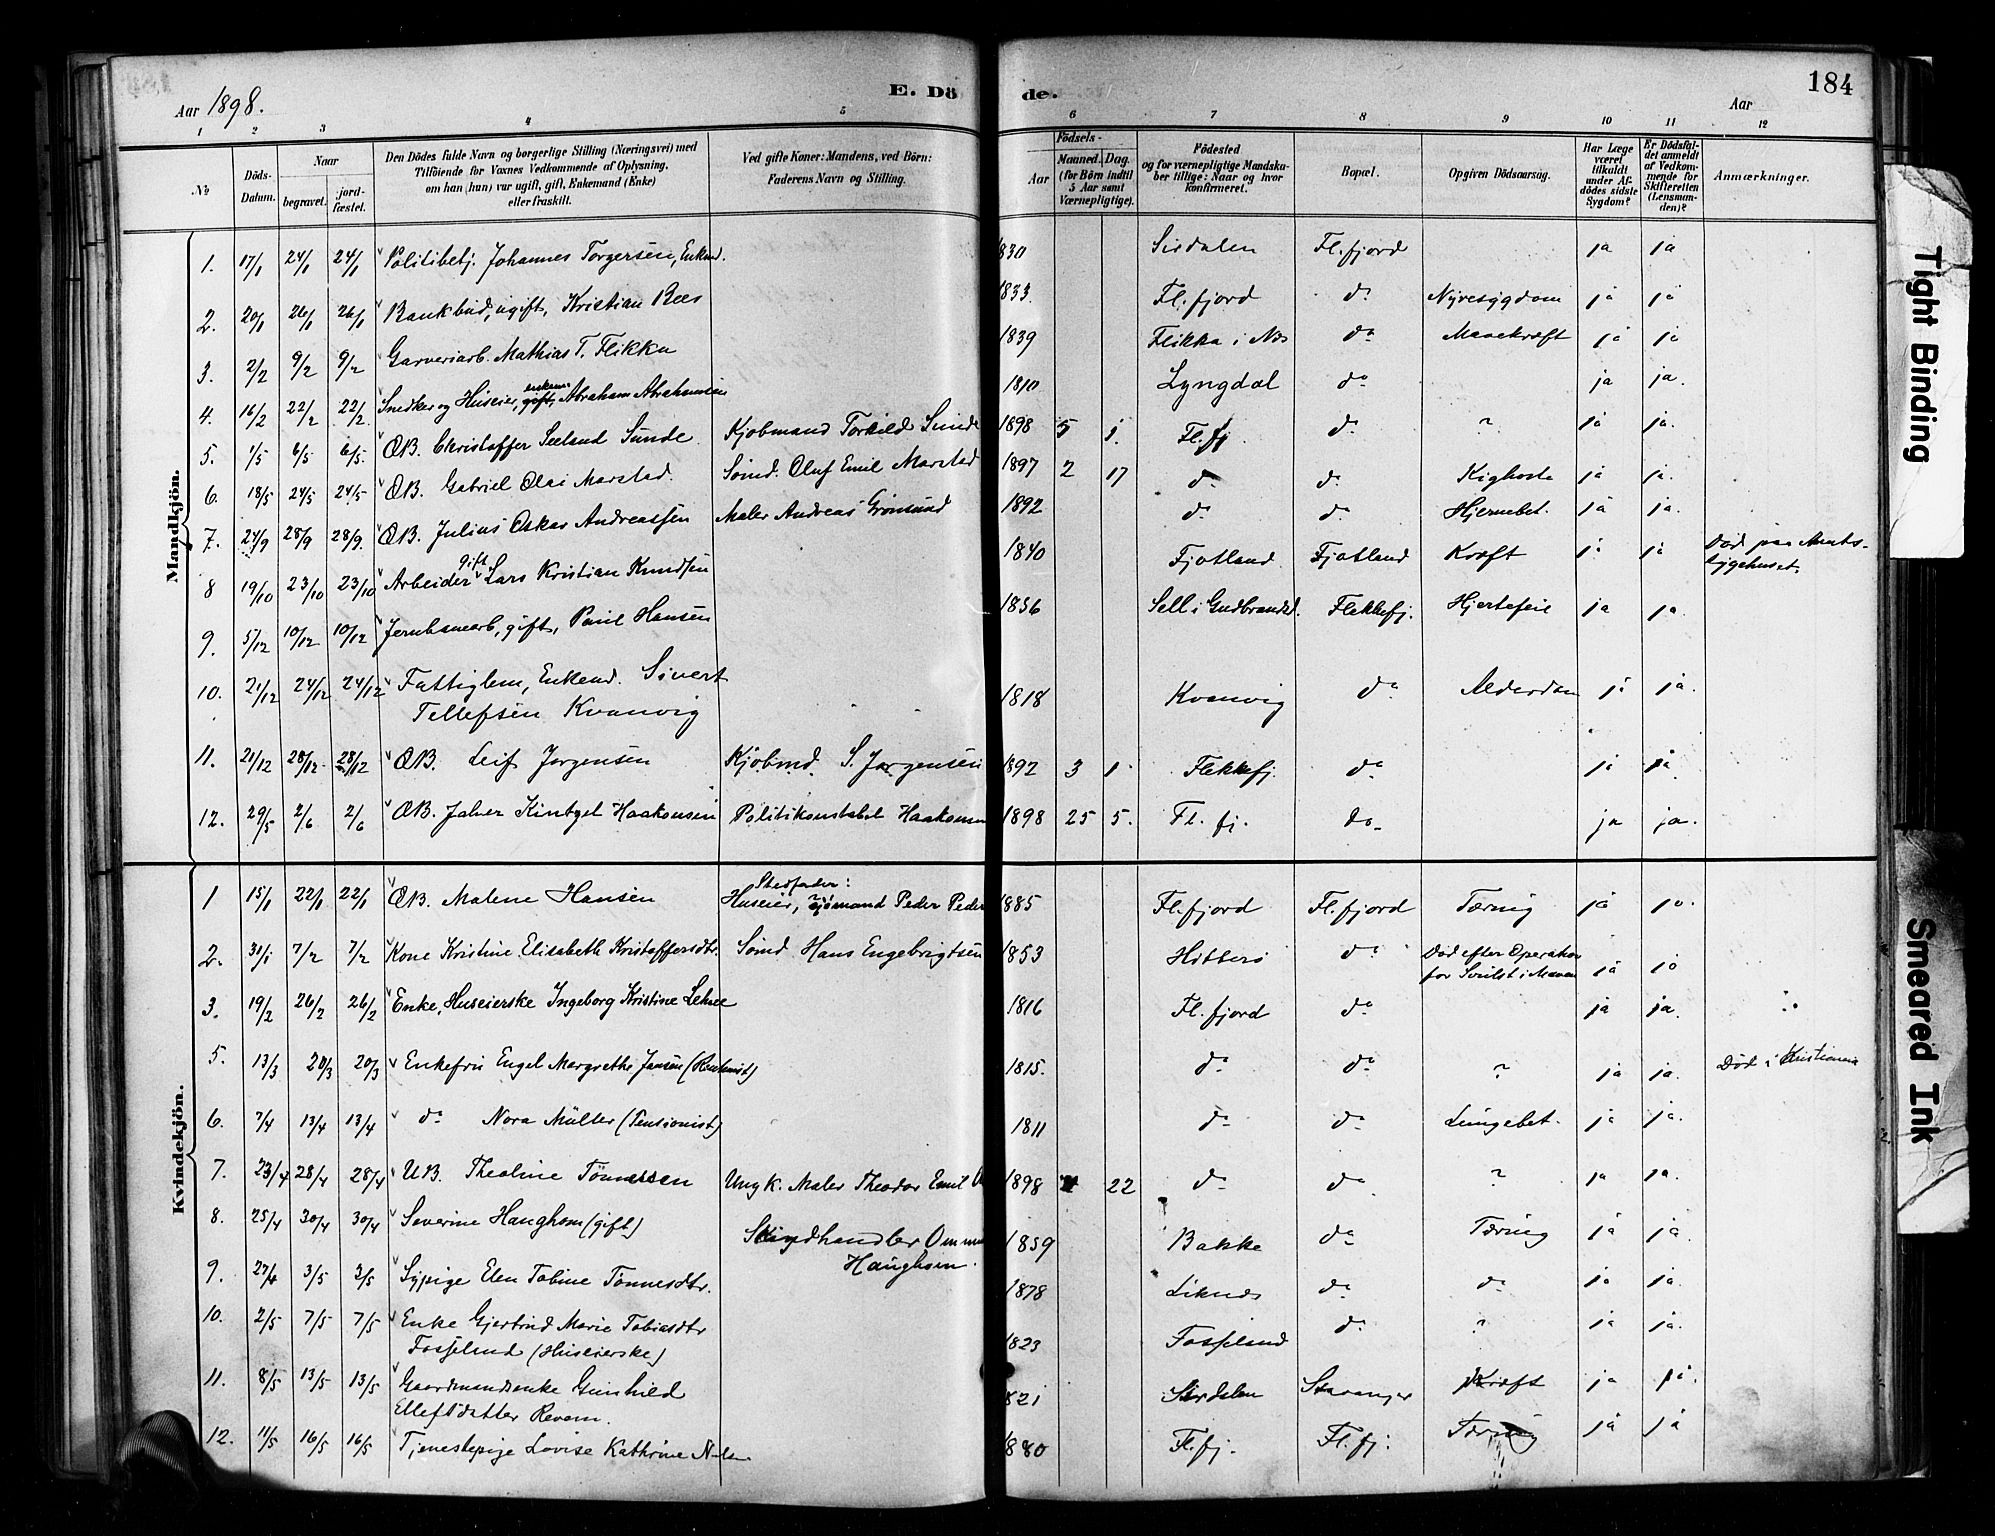 184
Aar 1898.
E. Dö
de.
Aar
1 2 3 4 5 6 7 8 9 10 11 12
No
Döds-Datum.
Naar
begravet.
jord-fæstet.
Den Dödes fulde Navn og borgerlige Stilling (Næringsvei) med
Tilföiende for Voxnes Vedkommende af Oplysning,
om han (hun) var ugift, gift, Enkemand (Enke)
eller fraskilt.
Ved gifte Koner: Mandens, ved Börn:
Faderens Navn og Stilling.
Födsels-
Aar
Maaned. Dag.
(for Börn indtil
5 Aar samt
Værnepligtige).
Födested
og for værnepligtige Mandska-
ber tillige: Naar og hvor
konfirmeret.
Bopæl.
Opgiven Dödsaarsag.
Har Læge
været
tilkaldt
under Af-
dödes sidste
Sygdom?
Er Dödsfal-
det anmeldt
af Vedkom-
mende for
Skifteretten
(Lensman-
den)?
Anmærkninger.
Mandkjön.
1. 17/1 24/1 24/1 Politibetj. Johannes Torgersen, Enkmd. 830 Sirdalen Fl.fjord ja ja
2. 20/1 26/1 26/1 Bankbud, ugift, Kristian Bees 1833. Fl.fjord do Nyresygdom ja ja
3. 2/2 9/2 9/2 Garveriarb. Mathias T. Flikka 1839 Flikka i Nes do Mavekræft ja ja
4. 16/2 22/2 22/2 Snedker og Huseier, enkem. Abraham Abrahamsen 1810 Lyngdal do ja ja.
5. 1/5 6/5 6/5 ÆB. Christoffer Seeland Sunde Kjøbmand Torkild Sunde 1898 5 1. Fl.fj do ? ja ja.
6. 18/5 24/5 24/5 ÆB. Gabriel Olai Marstad. Sømd. Oluf Emil Marstad 1897 2 17 do do Kighoste ja ja.
7. 24/9 28/9 28/9. ÆB. Julius Oskar Andreassen Maler Andreas Grønsund 1892 do do Hjernebet. ja ja.
8 19/10 23/10 23/10 Arbeider gift Lars Kristian Knudsen 1840 Fjotland Fjotland Kræft ja ja Død paa Amts-
sygehuset.
9. 5/12 10/12 10/12 Jernbanearb, gift, Paul Hansen 1856 Sell i Gudbrandsd. Flekkefj. Hjertefeil ja ja.
10. 21/12 24/12 24/12 Fattiglem, Enkemd. Sivert
Tellefsen Kvanvig 1818 Kvanvig do Alderdom ja ja.
11. 21/12 28/12 28/12 ÆB. Leif Jørgensen Kjøbmd. S. Jørgensen 1892 3 1 Flekkefj. do ja ja
12. 29/5 2/6 2/6 ÆB. Kintzel Haakonsen Politikonstabel Haakonsen 1898 25 5. Fl.fj. do ja ja.
Kvindekjön.
1 15/1 22/1 22/1 ÆB. Malene Hansen Stedfader:
Huseier, Sjømand Peder Peder 885 Fl.fjord Fl.fjord Tæring ja ja.
2. 31/1 7/2 7/2 Kone Kristine Elisabeth Kristoffersdtr. Sømd Hans Engebrigtsen 1853 Hitterø do Død efter Operation
for Svulst i Maven ja ja
3. 19/2 26/2 26/2 Enke, Huseierske Ingeborg Kristine Lehne 1816 Fl.fjord do ja ja.
5. 13/3 20/3 20/3 Enkefru Engel Margrethe Jansen 1815. do do ? ja ja. Død i Kristiania
6. 7/4 13/4 13/4 do Nora Müller (Pensionist) 1811 do do Lungebet. ja ja.
7. 23/4 28/4 28/4 UB. Theoline Tønnessen Ungk. Maler Theodor Emil 1898 22 do do ? ja ja.
8. 25/4 30/4 30/4 Severine Haughom (gift) Skindhandler Ommun
Haughom. 1859 Bakke do Tæring ja ja.
9. 27/4 3/5 3/5 Sypige Elen Tobine Tønnesdtr. 1878 Liknes do do ja ja.
10. 2/5 7/5 7/5 Enke Gjertrud Marie Tobiasdtr
Fosseland (Huseierske) 1823 Fosseland do ? ja ja.
11. 8/5 13/5 13/5 Gaardmandsenke Gunhild
Ellefsdatter Revem. 821 Sirdalen Stavanger Kræft ja ja.
12. 11/5 16/5 16/5 Tjenestepige Lovise Kathrine 1880 Fl.fj. Fl.fj. Tæring ja ja
Tight Binding
Smeared Ink